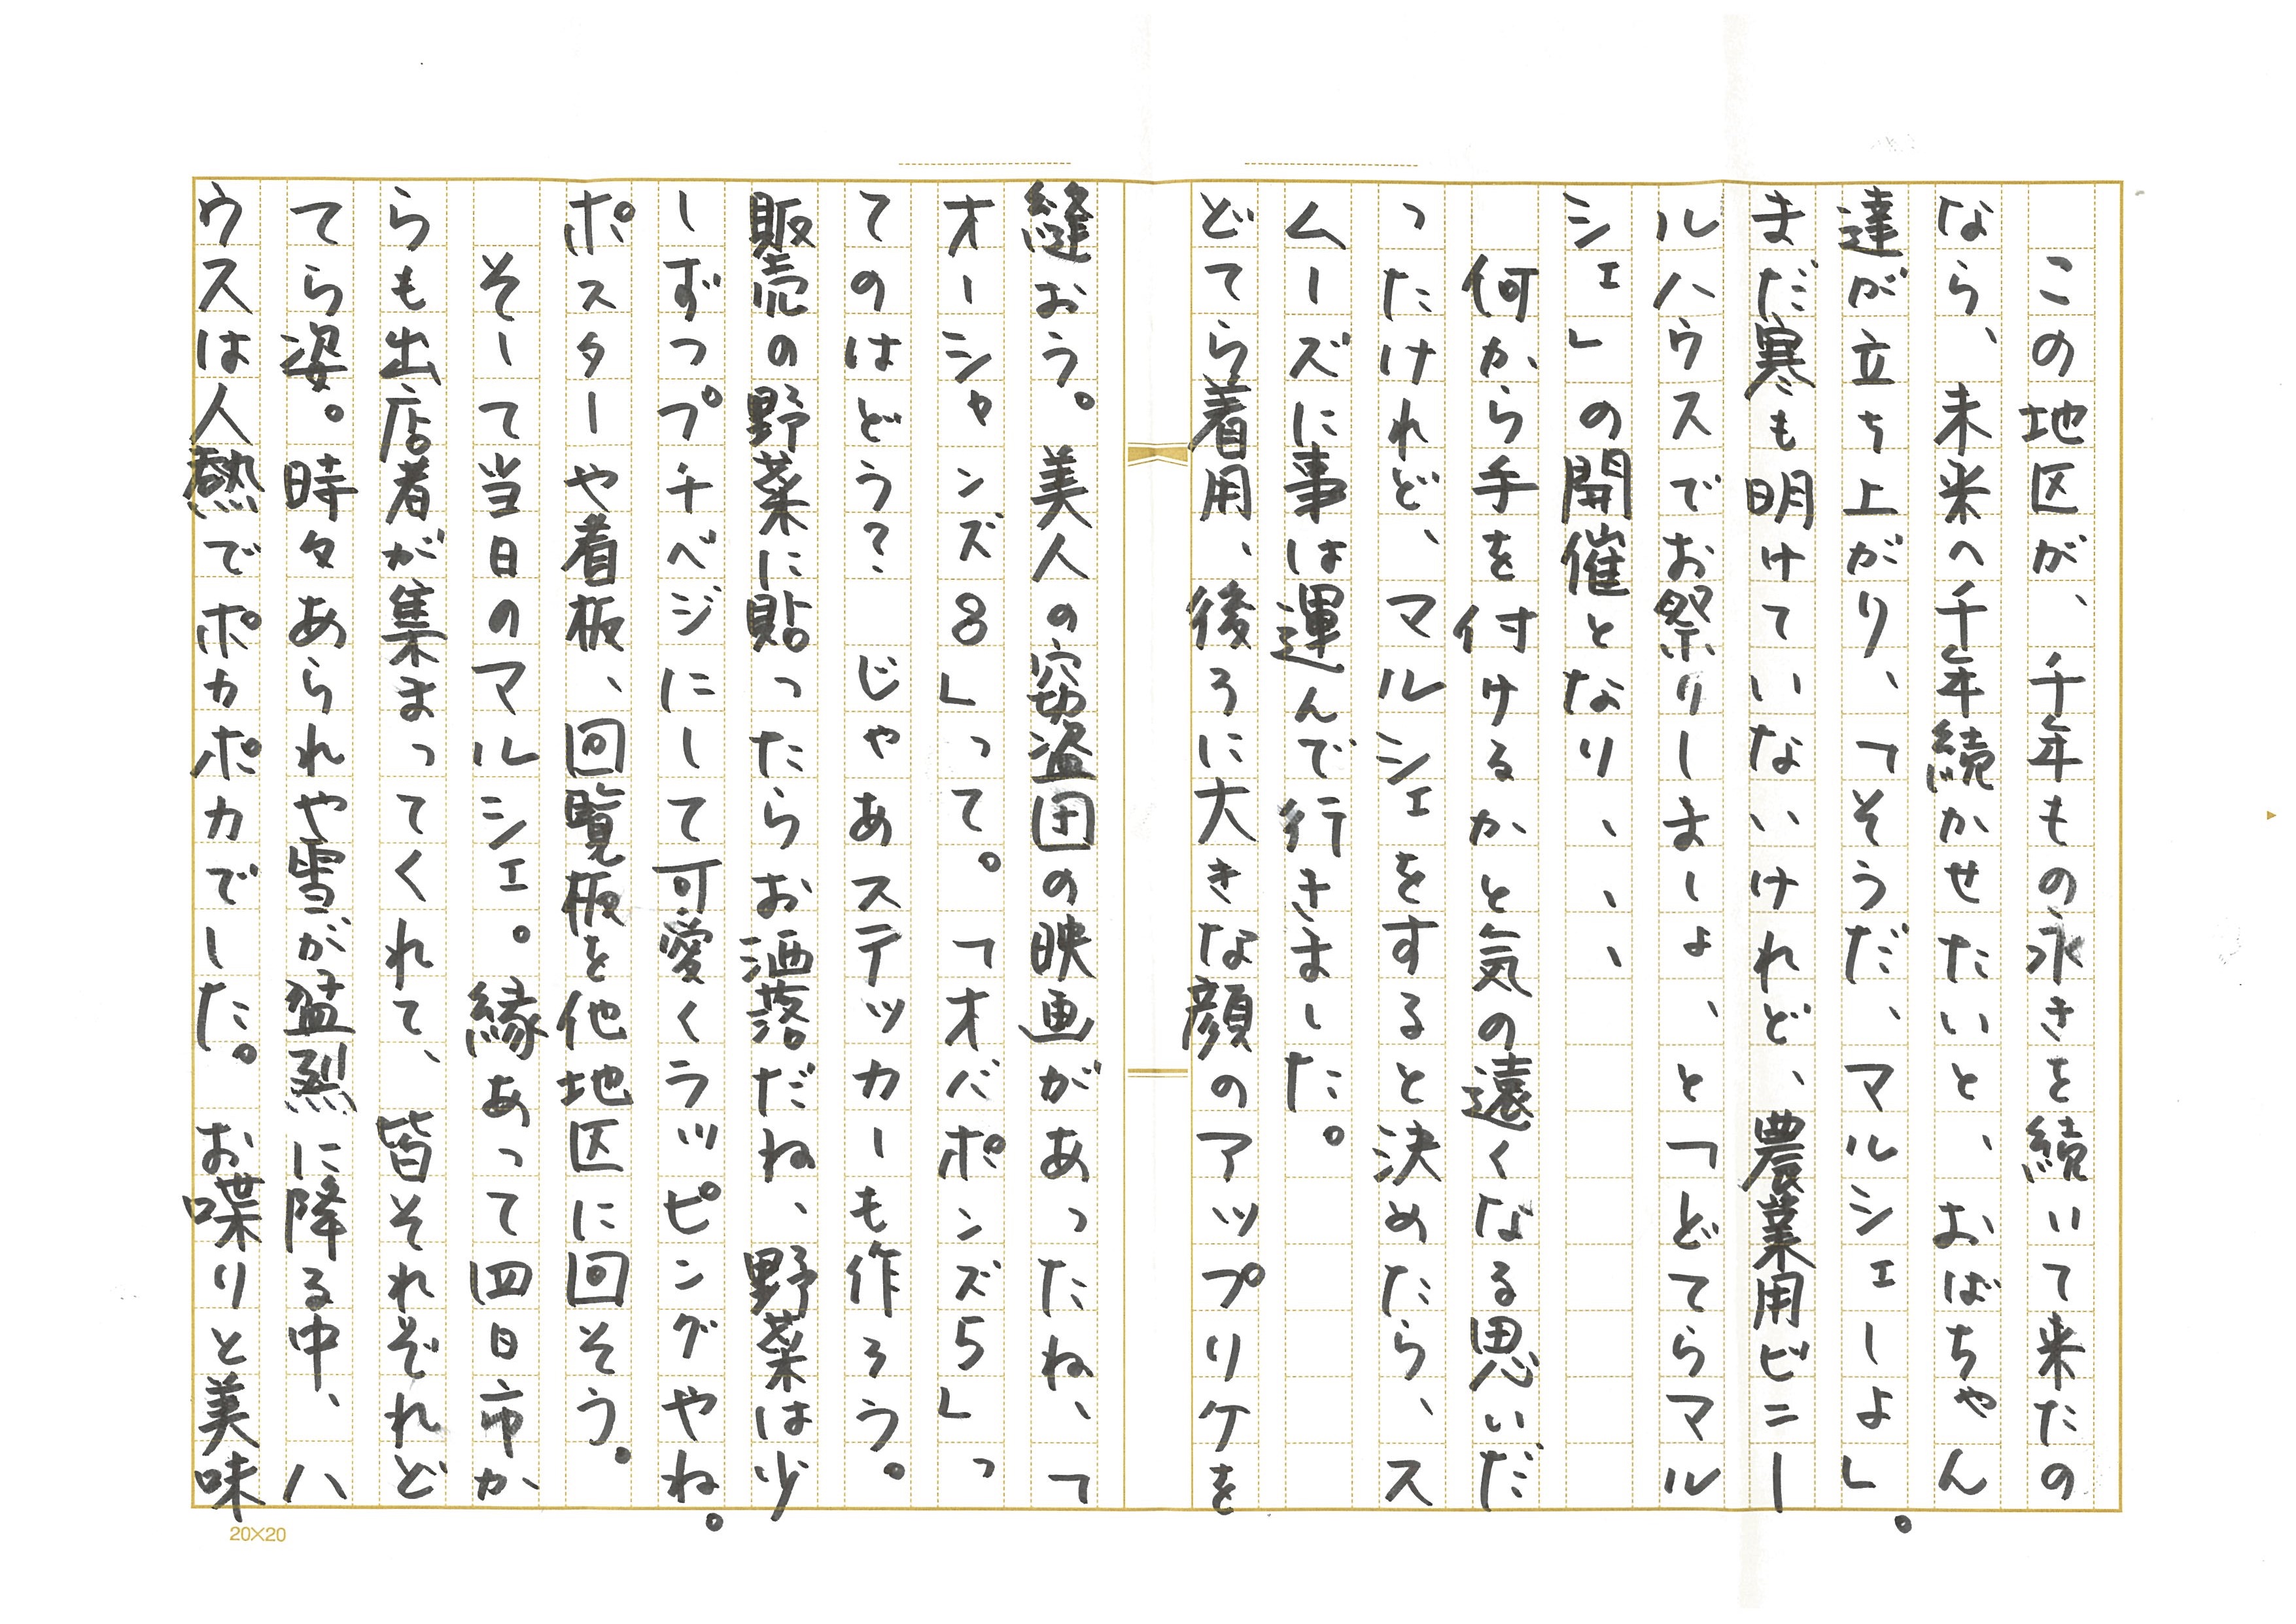 この地区が、千年もの永きを続いて来たの
なら、未来へ千年続かせたいと、おばちゃん
達が立ち上がり、「そうだ、マルシェしよ」。
まだ寒も明けていないけれど、農業用ビニー
ルハウスでお祭りしましょ、と「どてらマル
シェ」の開催となり、、、
何から手を付けるかと気の遠くなる思いだ
ったけれど、マルシェをすると決めたら、ス
ムーズに事は運んで行きました。
どてら着用、後ろに大きな顔のアップリケを
縫おう。美人の窃盗団の映画があったね、「
オーシャンズ8」って。「オバポンズ5」っ
てのはどう？じゃあステッカーも作ろう。
販売の野菜に貼ったらお洒落だね、野菜は少
しずつプチベジにして可愛くラッピングやね。
ポスターや着板、回覧板を他地区に回そう。
そして当日のマルシェ。縁あって四日市か
らも出店者が集まってくれて、皆それぞれど
てら姿。時々あられや雪が猛烈に降る中、ハ
ウスは人熱でポカポカでした。お喋りと美味
20×20